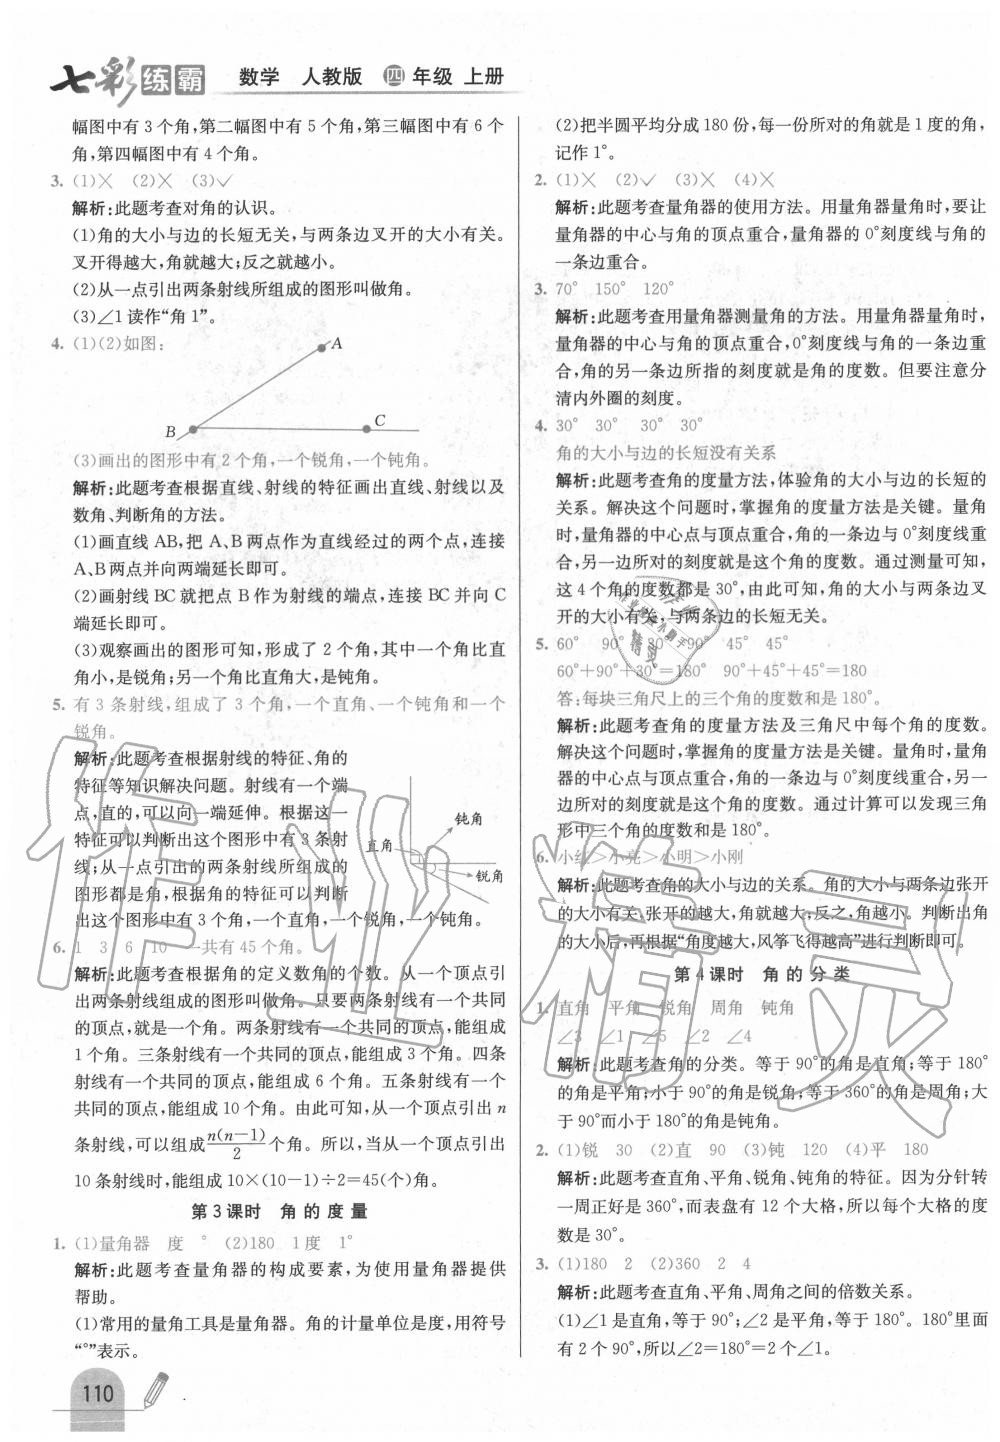 七彩练霸 数学 人教版 四年级 上册
幅图中有3个角,第二幅图中有5个角,第三幅图中有6个
角,第四幅图中有4个角。
3. (1)× (2)× (3)✓
解析:此题考查对角的认识。
(1)角的大小与边的长短无关,与两条边叉开的大小有关。
叉开得越大,角就越大;反之就越小。
(2)从一点引出两条射线所组成的图形叫做角。
(3)∠1读作“角1”。
4. (1)(2)如图:
A
B
C
(3)画出的图形中有2个角,一个锐角,一个钝角。
解析:此题考查根据直线、射线的特征画出直线、射线以及
数角、判断角的方法。
(1)画直线AB,把A、B两点作为直线经过的两个点,连接
A、B两点并向两端延长即可。
(2)画射线BC就把点B作为射线的端点,连接BC并向C
端延长即可。
(3)观察画出的图形可知,形成了2个角,其中一个角比直
角小,是锐角;另一个角比直角大,是钝角。
5. 有3条射线,组成了3个角,一个直角、一个钝角和一个
锐角。
解析:此题考查根据射线的特征、角的
特征等知识解决问题。射线有一个端
点,直的,可以向一端延伸。根据这一
特征可以判断出这个图形中有3条射
线;从一点引出的两条射线所组成的
图形都是角,根据角的特征可以判断
出这个图形中有3个角,一个直角,一个锐角,一个钝角。
钝角
直角
锐角
6. 1 3 6 10 一共有45个角。
解析:此题考查根据角的定义数角的个数。从一个顶点引
出两条射线组成的图形叫做角。只要两条射线有一个共同
的顶点,就是一个角。两条射线有一个共同的顶点,能组成
1个角。三条射线有一个共同的顶点,能组成3个角。四条
射线有一个共同的顶点,能组成6个角。五条射线有一个
共同的顶点,能组成10个角。由此可知,从一个顶点引出n
条射线,可以组成n(n−1)/2个角。所以,当从一个顶点引出
10条射线时,能组成10×(10−1)÷2=45(个)角。
第3课时 角的度量
1. (1)量角器 度 ° (2)180 1度 1°
解析:此题考查量角器的构成要素,为使用量角器提供
帮助。
(1)常用的量角工具是量角器。角的计量单位是度,用符号
“°”表示。
110
(2)把半圆平均分成180份,每一份所对的角就是1度的角,
记作1°。
2. (1)× (2)✓ (3)× (4)×
解析:此题考查量角器的使用方法。用量角器量角时,要让
量角器的中心与角的顶点重合,量角器的0°刻度线与角的
一条边重合。
3. 70° 150° 120°
解析:此题考查用量角器测量角的方法。用量角器量角时,
量角器的中心与角的顶点重合,0°刻度线与角的一条边重
合,角的另一条边所指的刻度就是角的度数。但要注意分
清内外圈的刻度。
4. 30° 30° 30° 30°
角的大小与边的长短没有关系
解析:此题考查角的度量方法,体验角的大小与边的长短的
关系。解决这个问题时,掌握角的度量方法是关键。量角
时,量角器的中心点与顶点重合,角的一条边与0°刻度线重
合,另一边所对的刻度就是这个角的度数。通过测量可知,
这4个角的度数都是30°,由此可知,角的大小与两条边叉
开的大小有关,与两条边的长短无关。
5. 60° 90° 30° 90° 45° 45°
60°+90°+30°=180° 90°+45°+45°=180
答:每块三角尺上的三个角的度数和是180°。
解析:此题考查角的度量方法及三角尺中每个角的度数。
解决这个问题时,掌握角的度量方法是关键。量角时,量角
器的中心点与顶点重合,角的一条边与0°刻度线重合,另一
边所对的刻度就是这个角的度数。通过计算可以发现三角
形中三个角的度数和是180°。
6. 小红>小亮>小明>小刚
解析:此题考查角的大小与边的关系。角的大小与两条边张开
的大小有关,张开的越大,角就越大;反之,角越小。判断出角
的大小后,再根据“角度越大,风筝飞得越高”进行判断即可。
第4课时 角的分类
1. 直角 平角 锐角 周角 钝角
∠3 ∠1 ∠5 ∠2 ∠4
解析:此题考查角的分类。等于90°的角是直角;等于180°
的角是平角;小于90°的角是锐角;等于360°的角是周角;大
于90°而小于180°的角是钝角。
2. (1)锐 30 (2)直 90 (3)钝 120 (4)平 180
解析:此题考查直角、平角、锐角、钝角的特征。因为分针转
一周正好是360°,而表盘有12个大格,所以每个大格的度
数是30°。
3. (1)180 2 (2)360 2 4
解析:此题考查直角、平角、周角之间的倍数关系。
(1)∠1是直角,等于90°;∠2是平角,等于180°。180°里面
有2个90°,所以∠2=180°=2个∠1。
作业精灵